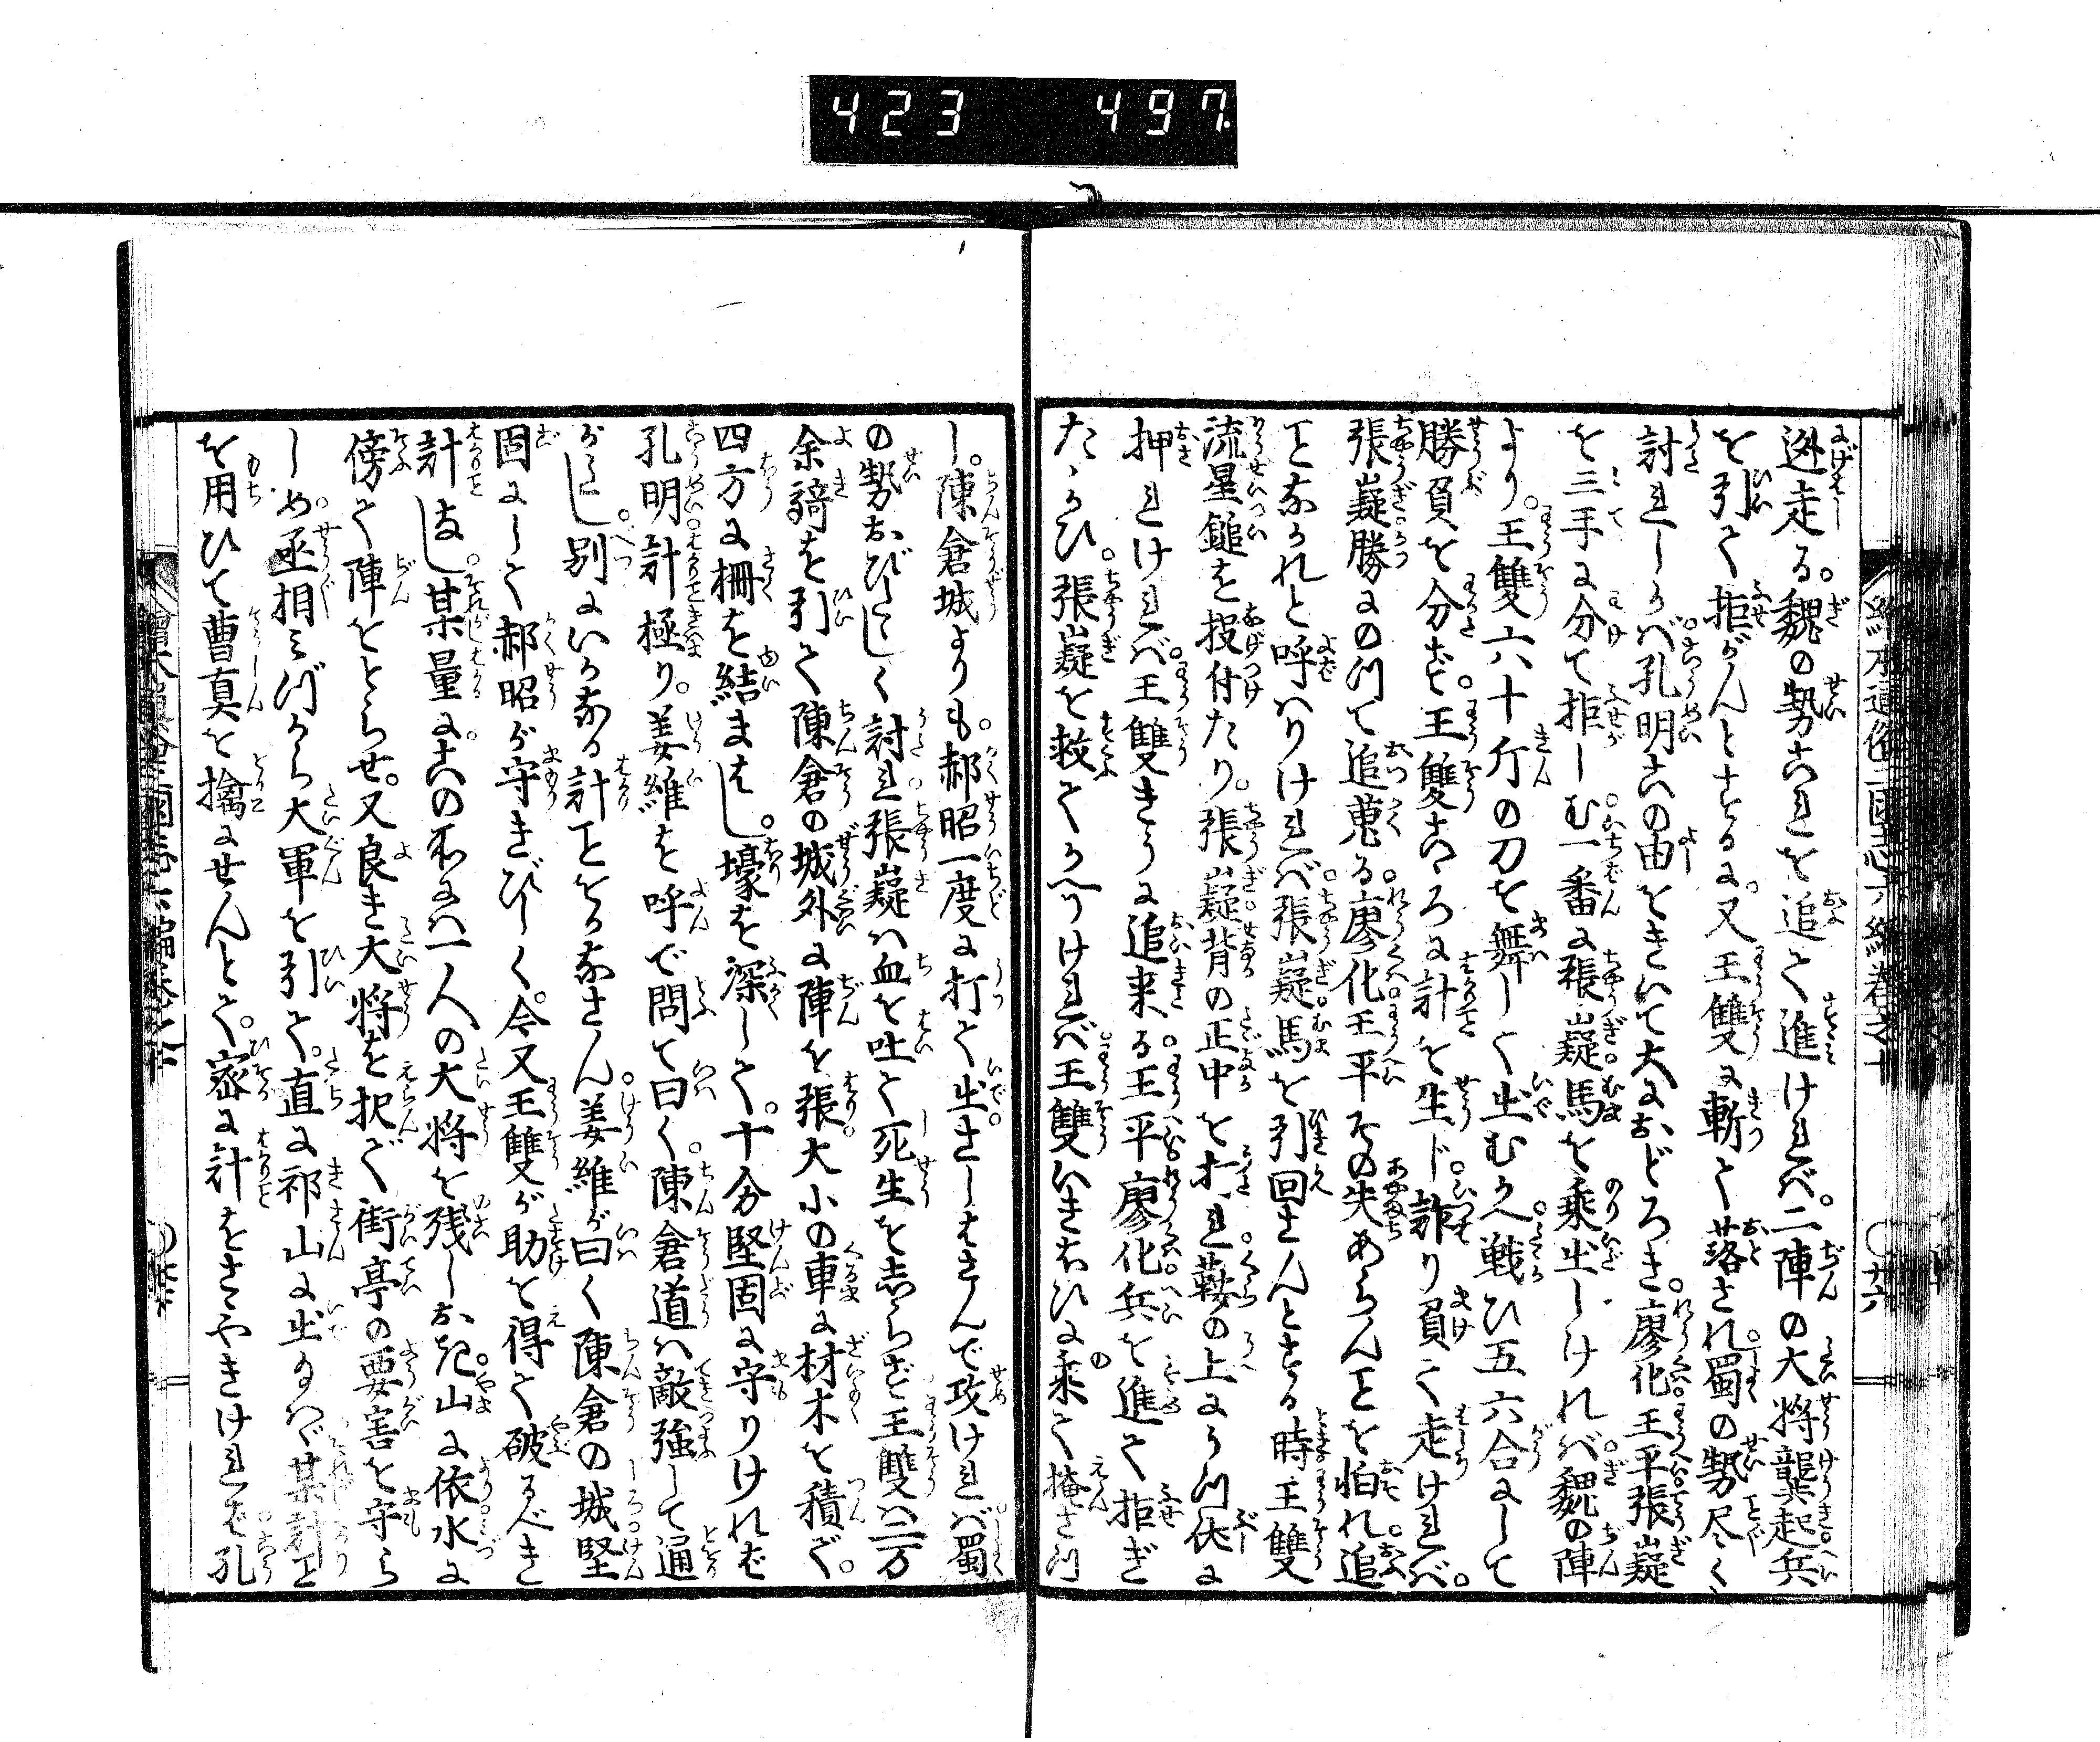 423 497
絵本通俗三国志六編巻之十
逃走る。魏の勢これを追て進ければ。二陣の大将龔起兵
を引て拒がんとするに。又王雙に斬て落され。蜀の勢尽く
討れしかば。孔明此の由をきいて大におどろき。廖化王平張嶷
を三手に分て拒しむ。一番に張嶷馬を乗出しければ。魏の陣
より。王雙六十斤の刀を舞して出むかへ。戦ひ五六合にして
勝負を分ず。王雙こゝろに計を生じ。詐り負て走ければ。
張嶷勝にのつて追蒐る。廖化王平その失あらんことを怕れ。追
ことなかれと呼はりければ。張嶷馬を引回さんとする時。王雙
流星鎚を投付たり。張嶷背の正中を打れ。鞍の上にうつ伏に
押れければ。王雙きうに追来る。王平廖化兵を進て拒ぎ
たゝかひ。張嶷を救てかへりければ。王雙いきおひに乗て掩さつ
し。陳倉城よりも。郝昭一度に打て出。さしはさんで攻ければ。蜀
の勢おびたゝしく討れ。張嶷は血を吐て死生をしらず。王雙は二万
余騎を引て。陳倉の城外に陣を張。大小の車に材木を積ぞ。
四方に柵を結まはし。壕を深して。十分堅固に守りければ
孔明計極り。姜維を呼で問て曰く。陳倉道は敵強して通
がたし。別にいかなる計ことをかなさん。姜維が曰く。陳倉の城堅
固にして郝昭が守きびしく。今又王雙が助を得て破るべき
計なし。某量に。此の所には一人の大将を残しおき。山に依水に
傍て陣をとらせ。又良き大将を択で街亭の要害を守ら
しめ。丞相みづから大軍を引て。直に祁山に出たまへ。某計こと
を用ひて曹真を擒にせんとて。密に計をさゝやきければ。孔